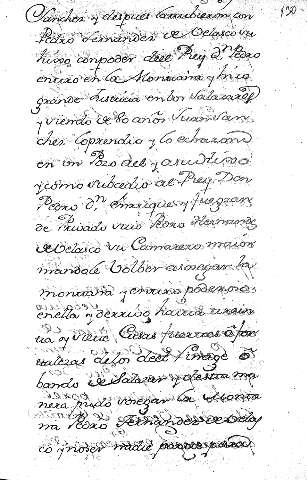 Sanchez y despues la tubieron con
Pedro Fernandez de Velasco su
hixo, con poder del Rey Dn Pedro
entro en la Montaña y hizo
grande Justicia en los Salazares
y siendo de 80 años Juan San
chez lo prendio y lo echaron
en un Pozo del y a su hixo
y como subcedio al Rey Don
Pedro Dn Enrrique y fue gran
de Privado suio Pedro Hernandez
de Velasco su Camarero maior
mandole bolber a sosegar la
montaña y entro poderoso
en ella y derrivo hasta treinta
y Casas fuertes o for
talezas de los de el linage o
bando de Salazar y de esta ma
nera pudo sosegar la Monta
ña Pedro Fernandez de Velas
co y poner nadie
150